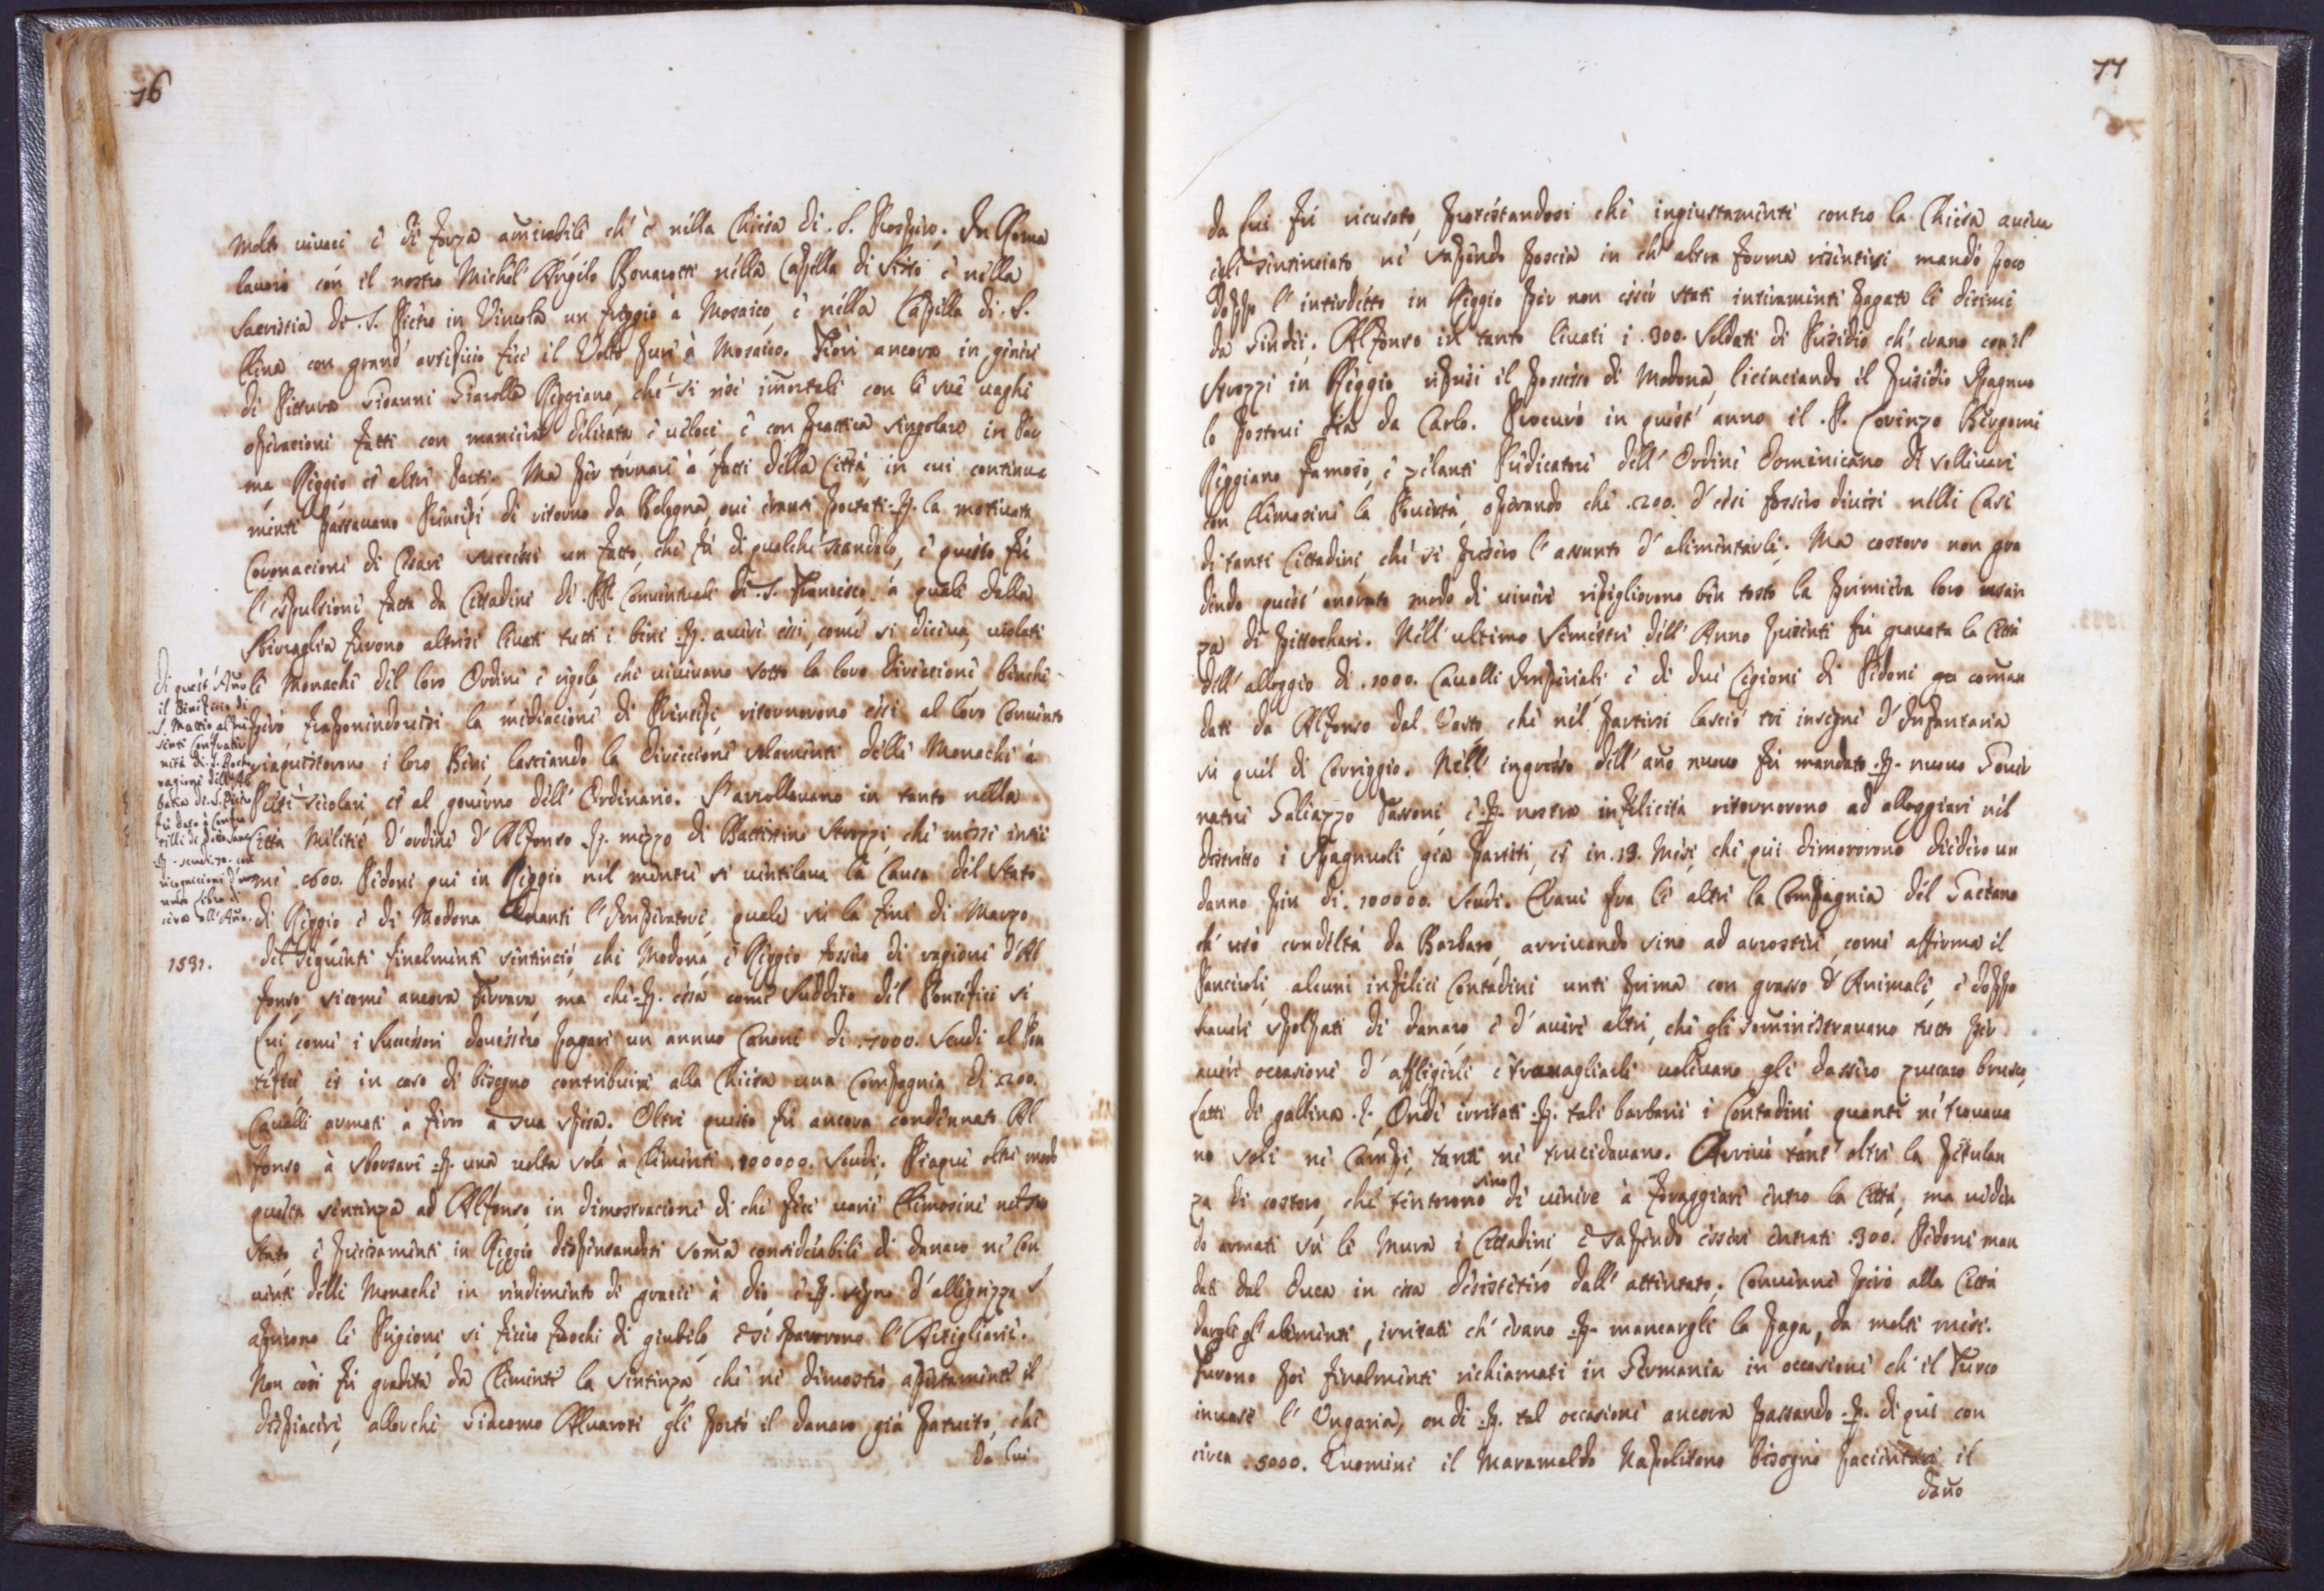 76
molto uiuaci è di forza amirabili ch' è nella Chiesa di .S. Prospero. In Roma
lauorò con il nostro Michel' Angelo Bonarotti nella Capella di Sisto, è nella
Sacristia di .S. Pietro in Vincola un freggio à Mosaico, è nella Capella di .S.
Elena con grand' artificio fece il Volto pure à Mosaico. Fiorì ancora in genere
di Pittura Gioanni Giarolla Reggiano, che si rese imortale con le sue uaghe
operacioni fatte con maniera delicata è ueloce è con prattica singolare in Par
ma Reggio, et altre Parti. Ma per tornare à fatti della Città, in cui continua
mente passauano Principi di ritorno da Bologna, oue eransi portati .p. la motiuata
Coronacione di Cesare successe un fatto, che fù di qualche scandalo, è questo fù
l' espulsione fatta da Cittadini di PP. Conuentuali di .S. Francesco, à quali dalla
Sbirraglia furono altresì leuati tutti i beni .p. auere essi, come si diceua, uiolati
le Monache del loro Ordine è regola che uiueuano sotto la loro direccione, benche
però fraponendouisi la mediacione di Principi, ritornorono essi al loro Conuento
riaquistorono i loro Beni, lasciando la direccione solamente delle Monache à
Preti secolari, et al gouerno dell' Ordinario. S' arrollauano in tanto nella
Città Milicie d' ordine d' Alfonso .p. mezzo di Battistino Strozzi, che messe insie
me .600. Pedoni qui in Reggio nel mentre si uentilaua la Causa del Stato
di Reggio è di Modona auanti l' Imperatore, quale sù la fine di Marzo
Di quest' Año
il Beneficio di
S. Matteo
nità di .S. Rocho
ragioni dell' Ab
batia di .S. Pietro
fù dato à Confra
telli di detto Santo
.p. scudi .70. con
ricognicione d' una
meza Libra di
cera all' Año.
1531.
del seguente finalmente sentenciò, che Modona, è Reggio fossero di ragione d' Al
fonso, sicome ancora Ferrara, ma che .p. essa come Suddito del Pontefice sì
Lui come i Successori douessero pagare un annuo Canone di .7000. Scudi al Pon
tefice, et in caso di bisogno contribuire alla Chiesa una Compagnia di .200.
Caualli armati à ferro à sua spesa. Oltre questo fù ancora condennato Al
fonso à sborsare .p. una uolta sola à Clemente .100000. Scudi. Piaque oltre modo
questa sentenza ad Alfonso, in dimostracione di che fece uarie Elemosine nel suo
Stato, è precisamente in Reggio dispensandosi soma considerabile di danaro ne' Con
uenti delle Monache in rendimento di gracie à Dio, è .p. segno d' allegrezza s'
aprirono le Prigioni, si fecero fuochi di giubilo, è si spararono l' Artiglierie.
Non così fù gradita da Clemente la sentenza, che ne dimostrò apertamente il
dispiacere, allorche Giacomo Aluaroti gli portò il danaro già patuito, che
da Lui
77
da Lui fù ricusato, protestandosi che ingiustamente contro la Chiesa aueua
egli sentenciato, ne sapendo poscia in ch' altra forma risentirsi mandò poco
doppo l' interdetto in Reggio per non esser stati intieramente pagate le decime
da Sindici. Alfonso in tanto leuati i .300. Soldati di Presidio ch' erano con il
Strozzi in Reggio riprese il possesso di Modona, licenciando il presidio Spagnuo
lo postoui già da Carlo. Procurò in quest' anno il .P. Corenzo Bergomi
Reggiano famoso, è zelante Predicatore dell' Ordine Domenicano di solleuare
con Elemosine la Pouertà, operando che .200. d' essi fossero diuisi nelle Case
di tanti Cittadini, che si presero l' assunto d' alimentarli. Ma costoro non gra
dendo quest' onorato modo di uiuere ripigliorono ben tosto la primiera loro usan
za di pittochare. Nell' ultimo Semestre dell' Anno presente fù grauata la Città
dell' alloggio di .1000. Caualli Imperiali, è di due Legioni di Pedoni coman
dati da Alfonso dal Vasto, che nel partirsi lasciò tre insegne d' Infantaria
sù quel di Correggio. Nell' ingresso dell' año nuouo fù mandato .p. nuouo Gouer
natore Galiazzo Tassoni, è .p. nostra infelicità ritornorono ad alloggiare nel
distretto i Spagnuoli già partiti, et in .13. Mesi, che qui dimororono diedero un
danno più di .100000. Scudi. Eraui fra le altre la Compagnia del Gaetano
ch' usò crudeltà da Barbaro, arriuando sino ad arrostire, come afferma il
Panciroli, alcuni infelici Contadini unti prima con grasso d' Animali, è doppo
hauere spolpati di danaro è d' auere altri, che gli somministrauano tutto per
auere occasione d' affligerli, è trauagliarli uoleuano gli dassero zuccaro brusco,
Latte di gallina .&. Onde irritati .p. tali barbarie i Contadini quanti ne trouaua
no soli ne' Campi, tanti ne trucidauano. Arriuò tant' oltre la petulan
za di costoro, che tentorono sino di uenire à foraggiare entro la Città, ma ueden
do armati sù le Mura i Cittadini, è sapendo esserui entrati .300. Pedoni man
dati dal Duca in essa desistettero dall' attentato; Conuenne però alla Città
dargli gl' alimenti, irritati ch' erano .p. mancargli la paga, da molti mesi.
Furono poi finalmente richiamati in Germania in occasione ch' il Turco
inuase l' Ungaria, onde .p. tal occasione ancora passando .p. di qui con
circa .5000. Huomini il Maramaldo Napolitano bisognò pacientare il
daño